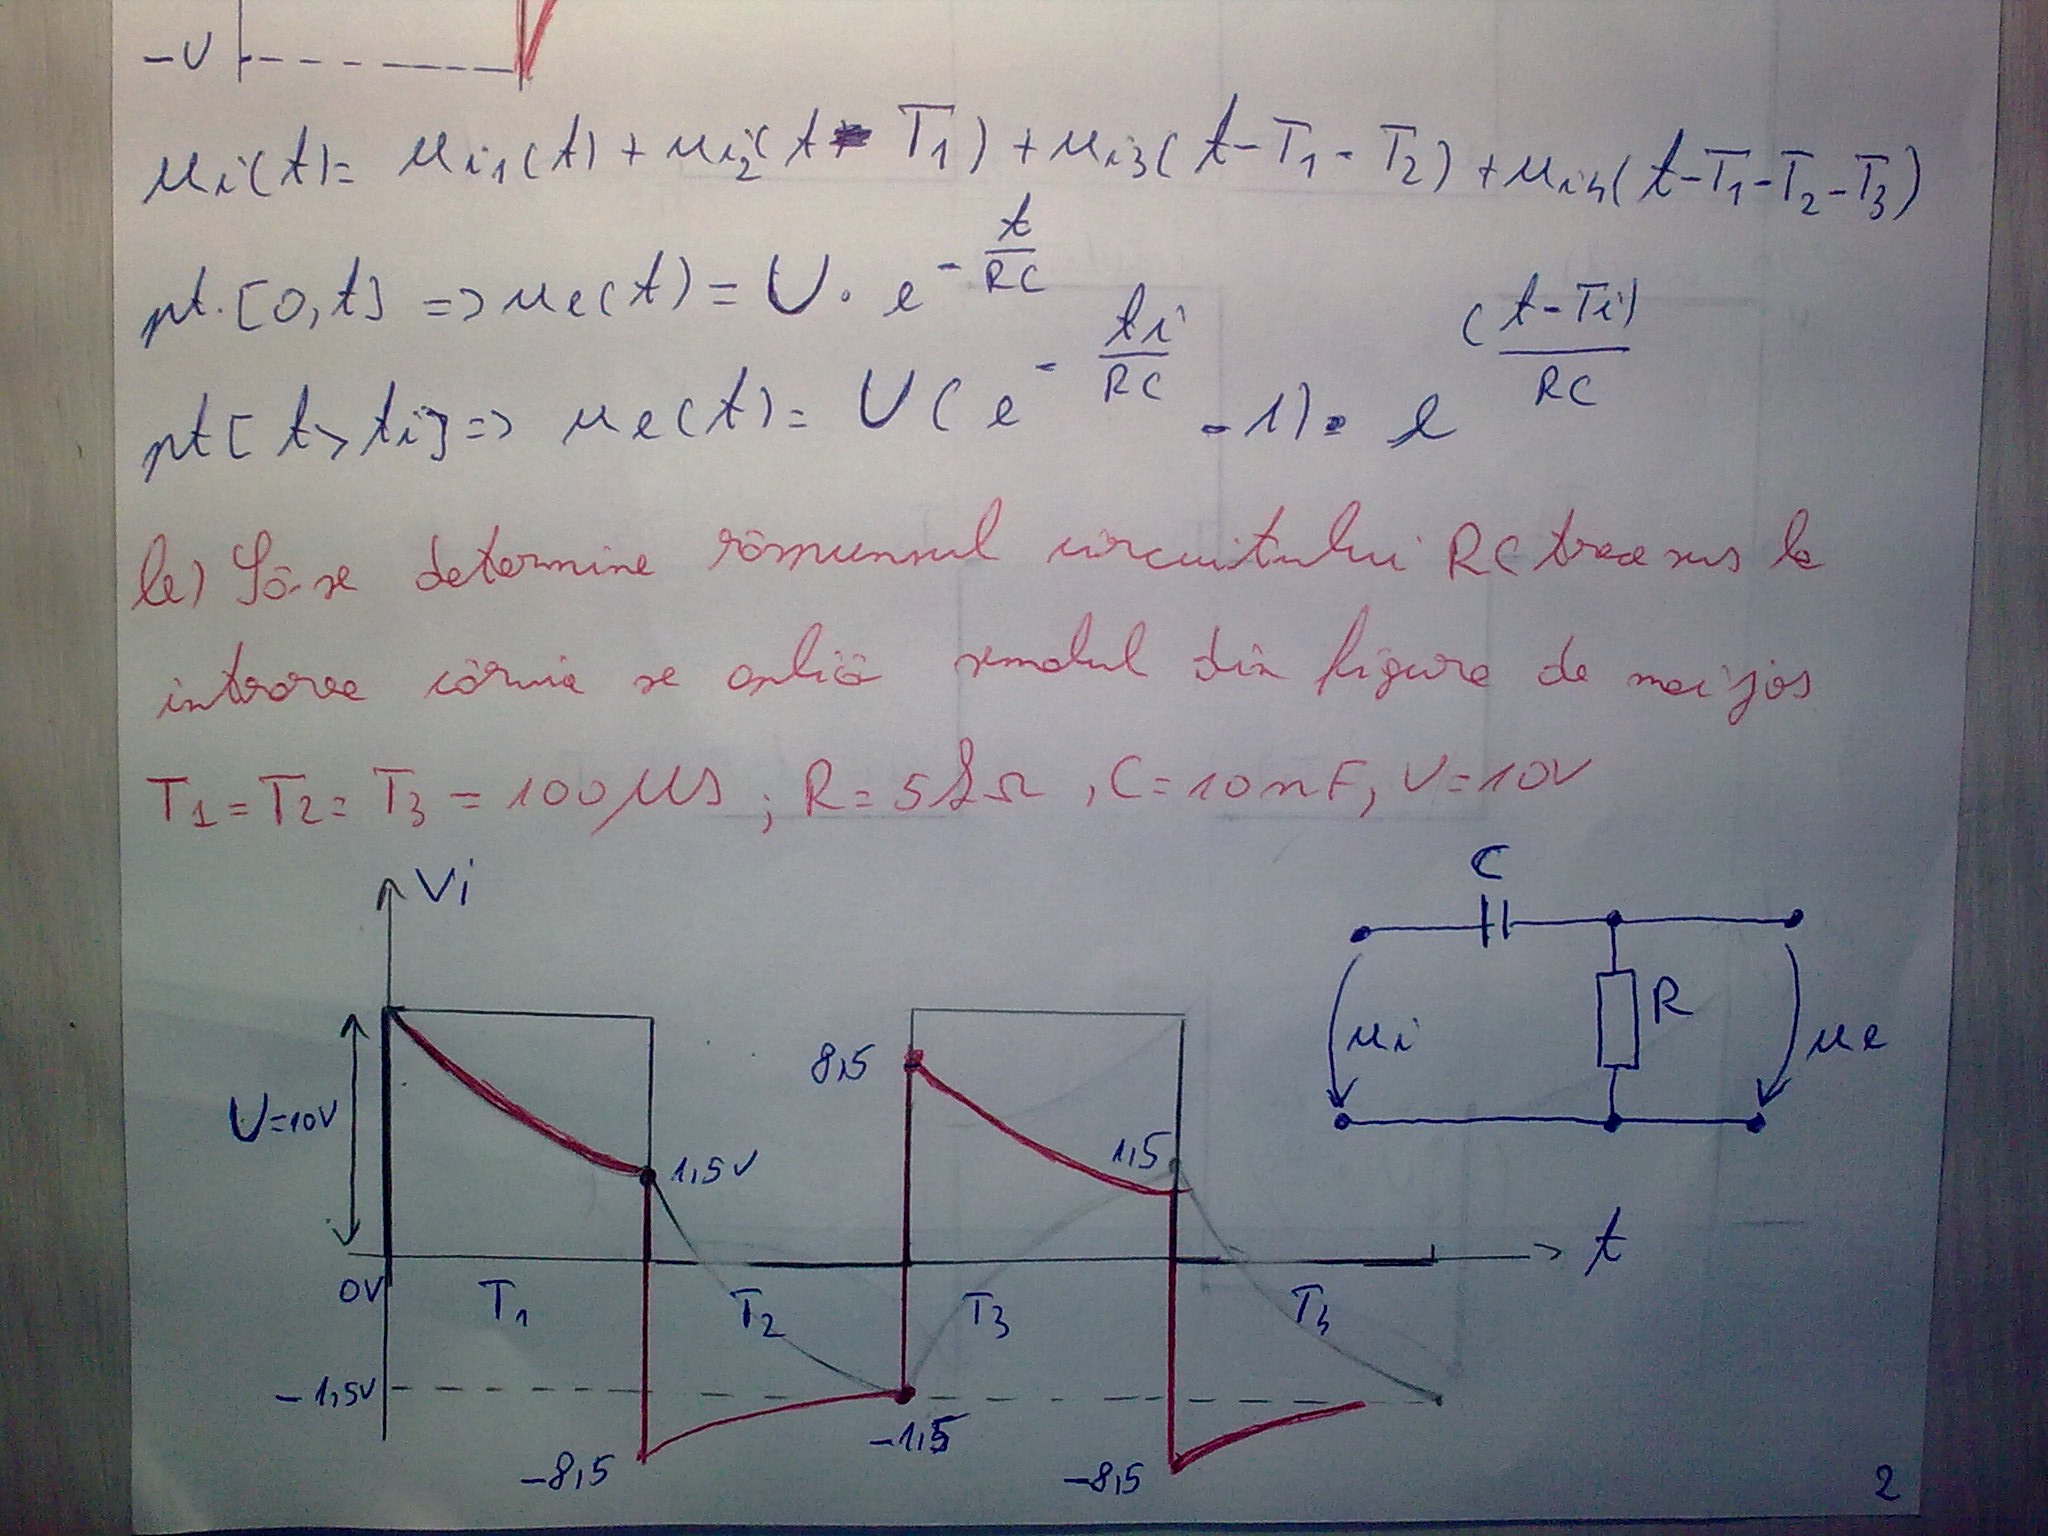 -U
ui(t)= ui1(t) + ui2(t - T1) + ui3(t-T1-T2) + ui4(t-T1-T2-T3)
pt. [0,t] => ue(t) = U · e^-t/RC
pt [t>ti] => ue(t) = U(e^-ti/RC -1) · e^(t-Ti)/RC
b) Să se determine răspunsul circuitului RC trece sus la
intrarea căruia se aplică semnalul din figura de mai jos
T1=T2=T3=100μs; R=5kΩ, C=10nF, U=10V
Vi
C
R
ui
ue
8,5
U=10V
1,5V
1,5
t
0V
T1
T2
T3
T3
-1,5V
-1,5
-8,5
-8,5
2